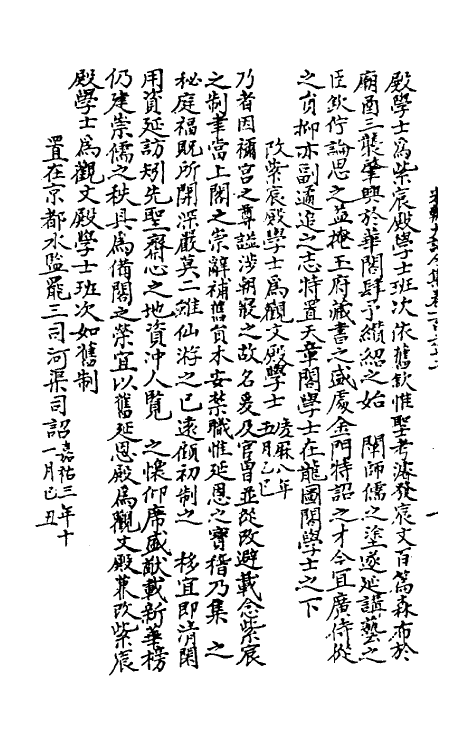 殿學士為紫宸殿學士班次依舊欽惟聖考濬發宸文百篇森布於
廟函三襲肇興於華閣肆予纘紹之始 闡師儒之塗遂延講藝之
臣欽佇論思之益掩王府藏書之盛處金門特詔之才今宜廣侍從
之員抑亦副遹追之志特置天章閣學士在龍圖閣學士之下
改紫宸殿學士為觀文殿學士 慶曆八年五月乙巳
乃者因禰宮之尊謚涉朝嚴之故名爰及官曹並從改避載念紫宸
之制聿當上閣之崇辭補舊員未安禁職惟延恩之寶稽乃集 之
秘庭福貺所開深嚴莫二雖仙游之已遠顧初制之 移宜即清閑
用資延訪矧先聖齋心之地資沖人覽 之懷仰席盛猷載新華榜
仍建崇儒之秩具為備閣之榮宜以舊延恩殿為觀文殿兼改紫宸
殿學士為觀文殿學士班次如舊制
置在京都水監罷三司河渠司詔 嘉祐三年十一月己丑